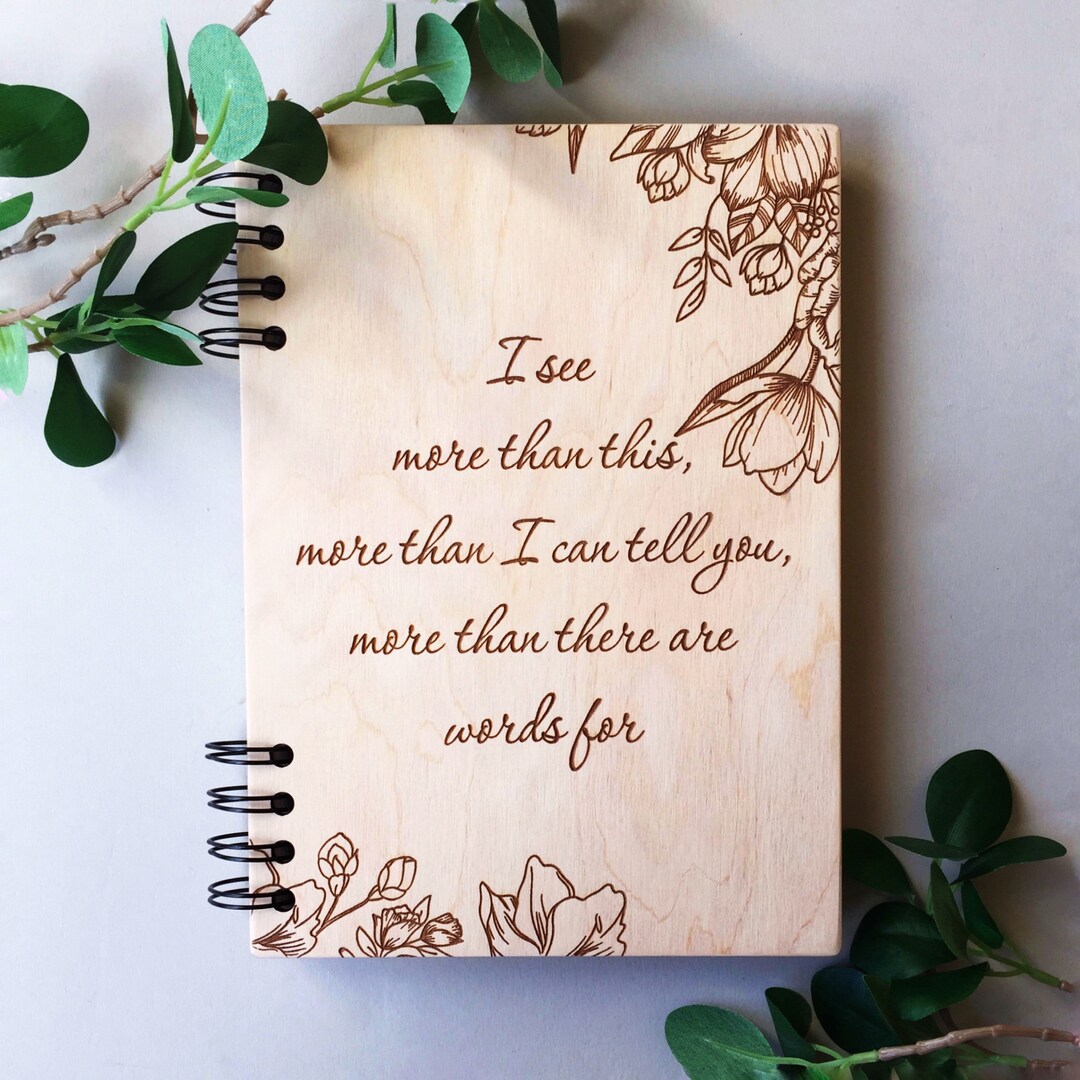 I see
more than this,
more than I can tell you,
more than there are
words for